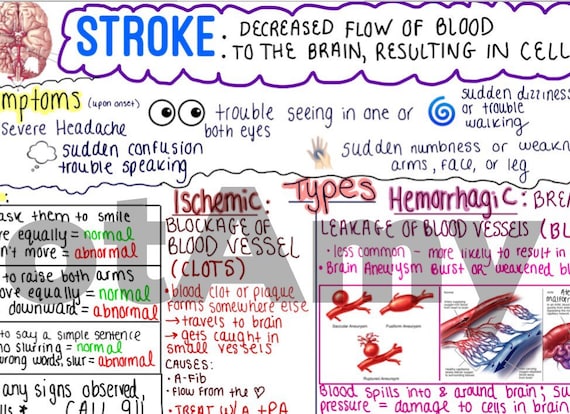 STROKE: DECREASED FLOW OF BLOOD
TO THE BRAIN, RESULTING IN CELL
mptoms (upon onset)
severe Headache
trouble seeing in one or
both eyes
sudden dizziness
or trouble
walking
sudden confusion
trouble speaking
sudden numbness or weakn
arms, face, or leg
Types
ask them to smile
re equally = normal
n't move = abnormal
to raise both arms
ove equally = normal
downward = abnormal
to say a simple sentence
no slurring = normal
wrong words, slur = abnormal
any signs observed,
CALL 911
Ischemic:
BLOCKAGE OF
BLOOD VESSEL
(CLOTS)
• blood clot or plaque
forms somewhere else
→ travels to brain
→ gets caught in
small vessels
CAUSES:
• A-Fib
• flow from the ♡
• TREAT W/ A tPA
Hemorrhagic: BREA
LEAKAGE OF BLOOD VESSELS (BL
• less common • more likely to result in
• Brain Aneurysm Burst or weakened bl
Saccular Aneurysm
Fusiform Aneurysm
Ruptured Aneurysm
Normal
Blood spills into & around brain; su
pressure = damage to cells in brain
otAmy